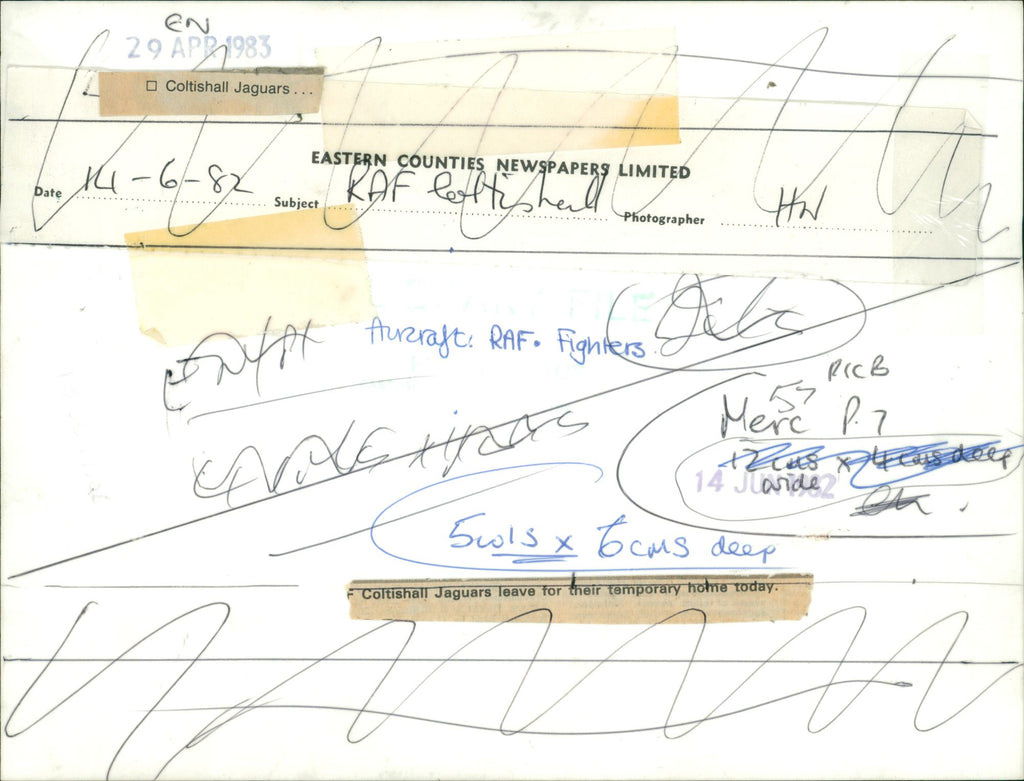 EN
29 APR 1983
☐ Coltishall Jaguars...
EASTERN COUNTIES NEWSPAPERS LIMITED
Date 14-6-82 Subject RAF Coltishall Photographer HW
Aircraft: RAF. Fighters
PICB
57
Merc P.7
12 cms x 4 cms deep
wide
14 JUN 1982
5 cols x 6 cms deep
F Coltishall Jaguars leave for their temporary home today.